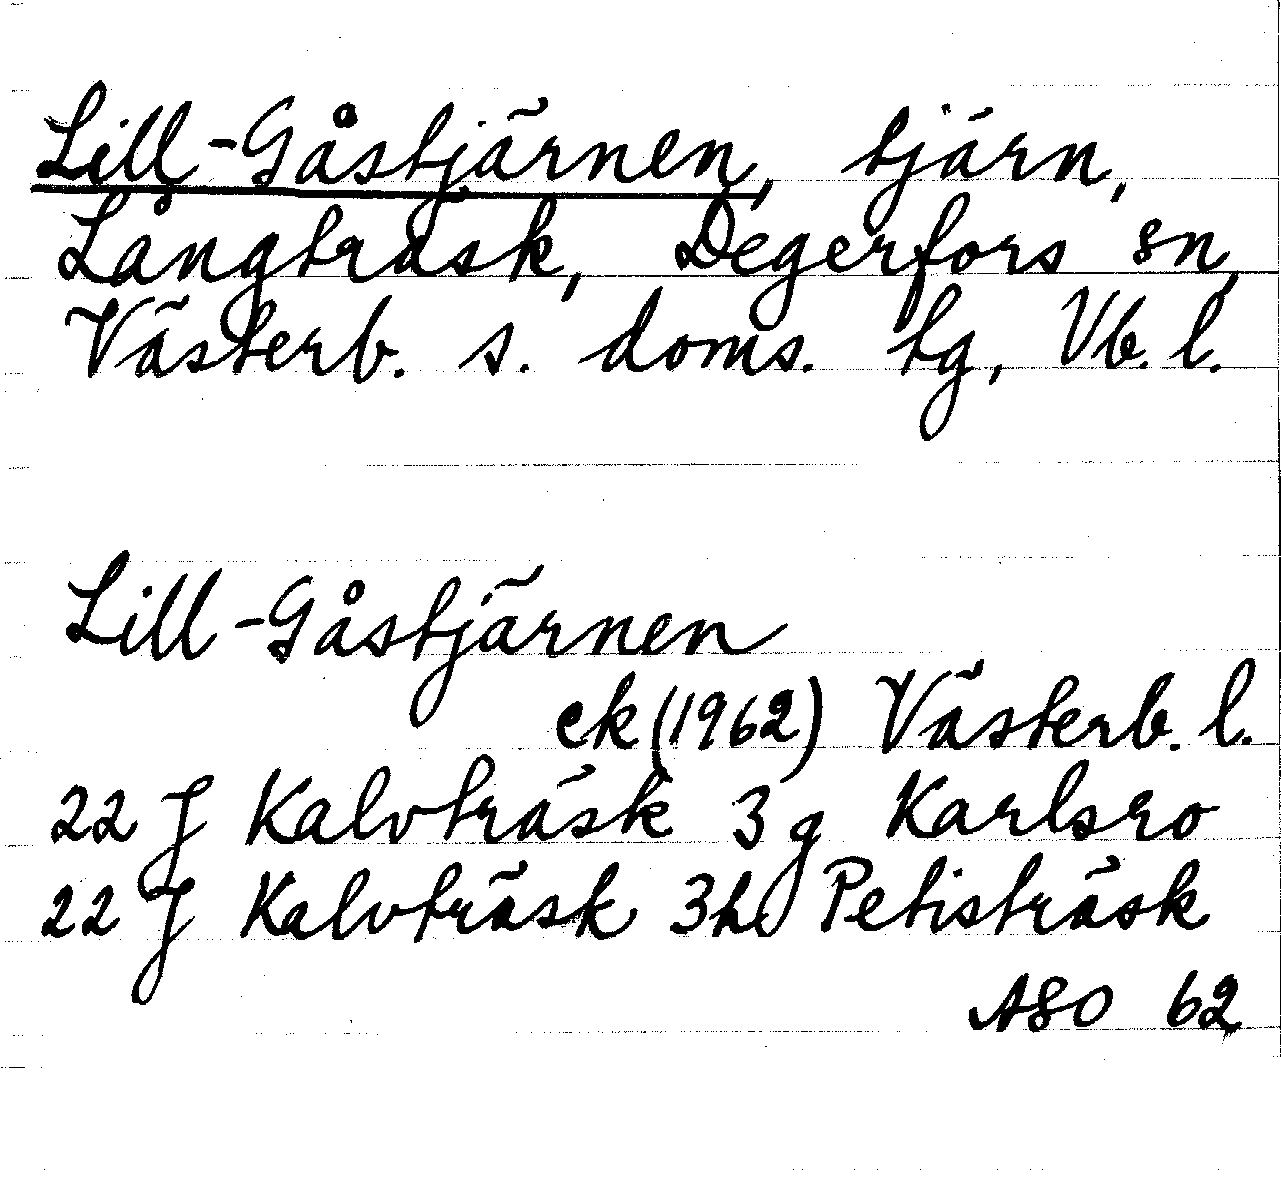 Lill-Gåstjärnen, tjärn,
Långträsk, Degerfors sn,
Västerb. s. doms. tg, Vb. l.
Lill-Gåstjärnen
ek (1962) Västerb. l.
22 J Kalvträsk 3 g Karlsro
22 J Kalvträsk 3h Petisträsk
ASO 62